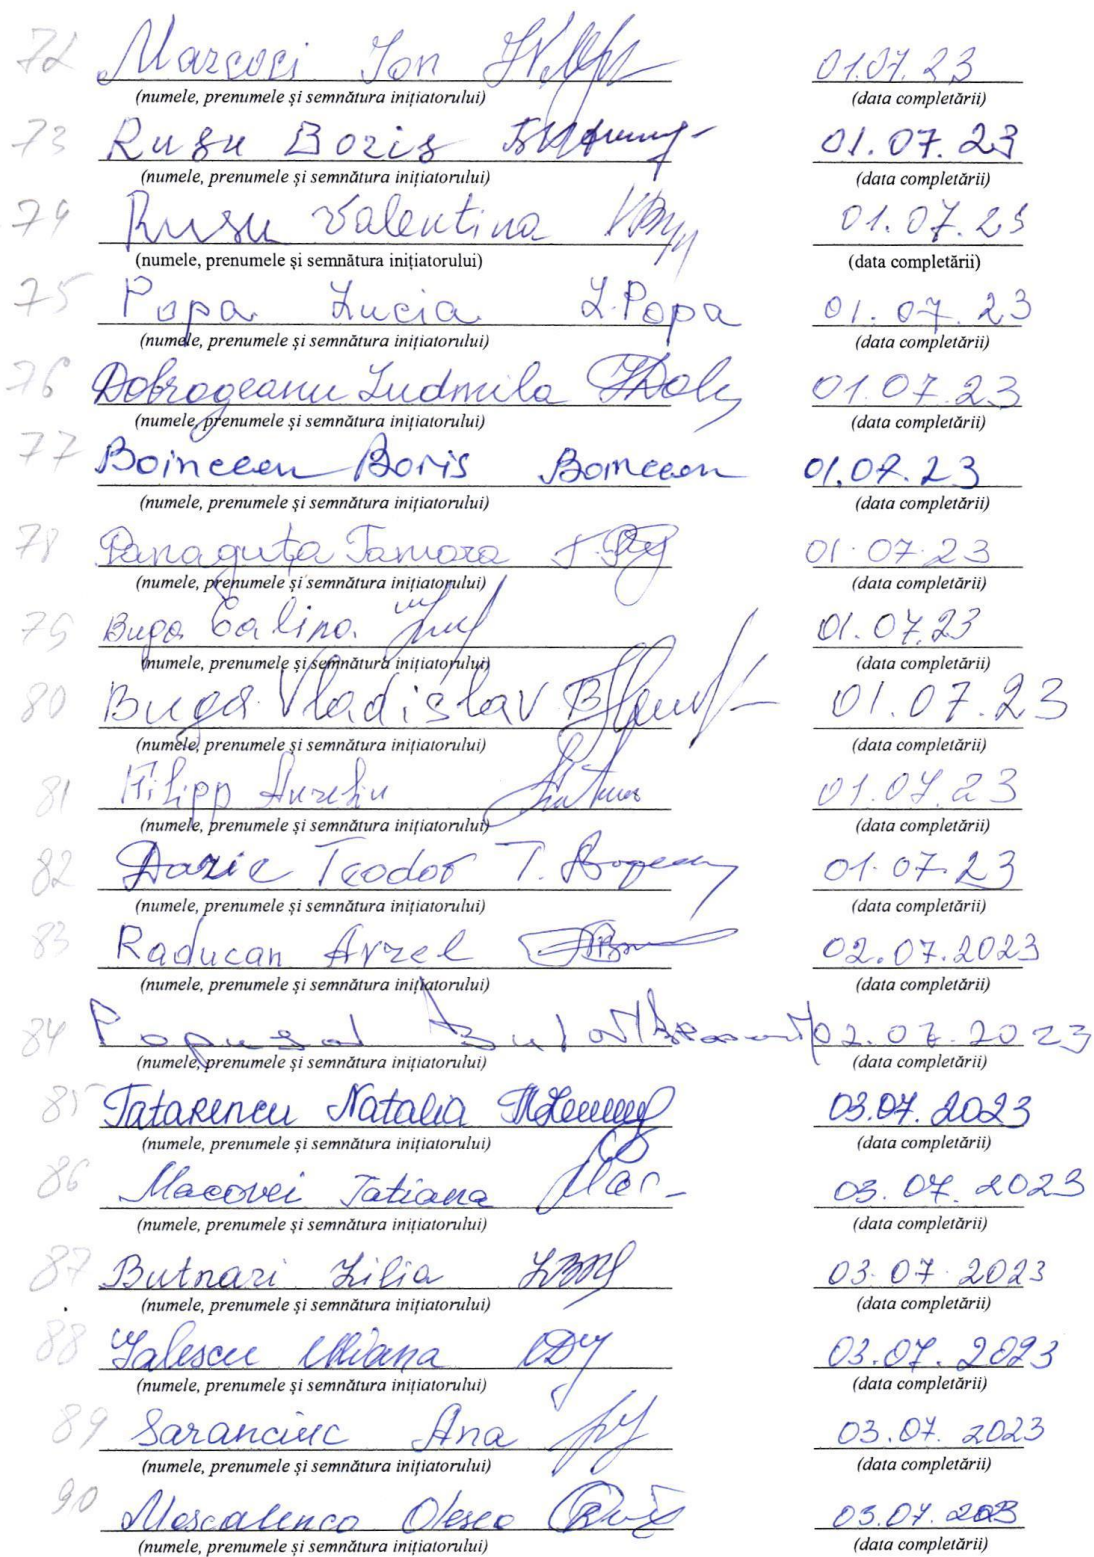 72 Marcoci Ion 01.07.23
(numele, prenumele și semnătura inițiatorului) (data completării)
73 Rusu Boris 01.07.23
(numele, prenumele și semnătura inițiatorului) (data completării)
74 Rusu Valentina 01.07.23
(numele, prenumele și semnătura inițiatorului) (data completării)
75 Popa Lucia L.Popa 01.07.23
(numele, prenumele și semnătura inițiatorului) (data completării)
76 Dobrogeanu Ludmila 01.07.23
(numele, prenumele și semnătura inițiatorului) (data completării)
77 Boincean Boris Boincean 01.07.23
(numele, prenumele și semnătura inițiatorului) (data completării)
78 Panaguța Tamara 01.07.23
(numele, prenumele și semnătura inițiatorului) (data completării)
79 Buga Galina 01.07.23
(numele, prenumele și semnătura inițiatorului) (data completării)
80 Buga Vladislav 01.07.23
(numele, prenumele și semnătura inițiatorului) (data completării)
81 Filipp Aureliu 01.07.23
(numele, prenumele și semnătura inițiatorului) (data completării)
82 Darie Teodor T. 01.07.23
(numele, prenumele și semnătura inițiatorului) (data completării)
83 Raducan Avrel 02.07.2023
(numele, prenumele și semnătura inițiatorului) (data completării)
84 02.07.2023
(numele, prenumele și semnătura inițiatorului) (data completării)
85 Tatarencu Natalia 03.07.2023
(numele, prenumele și semnătura inițiatorului) (data completării)
86 Macovei Tatiana 03.07.2023
(numele, prenumele și semnătura inițiatorului) (data completării)
87 Butnari Lilia 03.07.2023
(numele, prenumele și semnătura inițiatorului) (data completării)
88 03.07.2023
(numele, prenumele și semnătura inițiatorului) (data completării)
89 Saranciuc Ana 03.07.2023
(numele, prenumele și semnătura inițiatorului) (data completării)
90 Moscalenco Olesea 03.07.2023
(numele, prenumele și semnătura inițiatorului) (data completării)